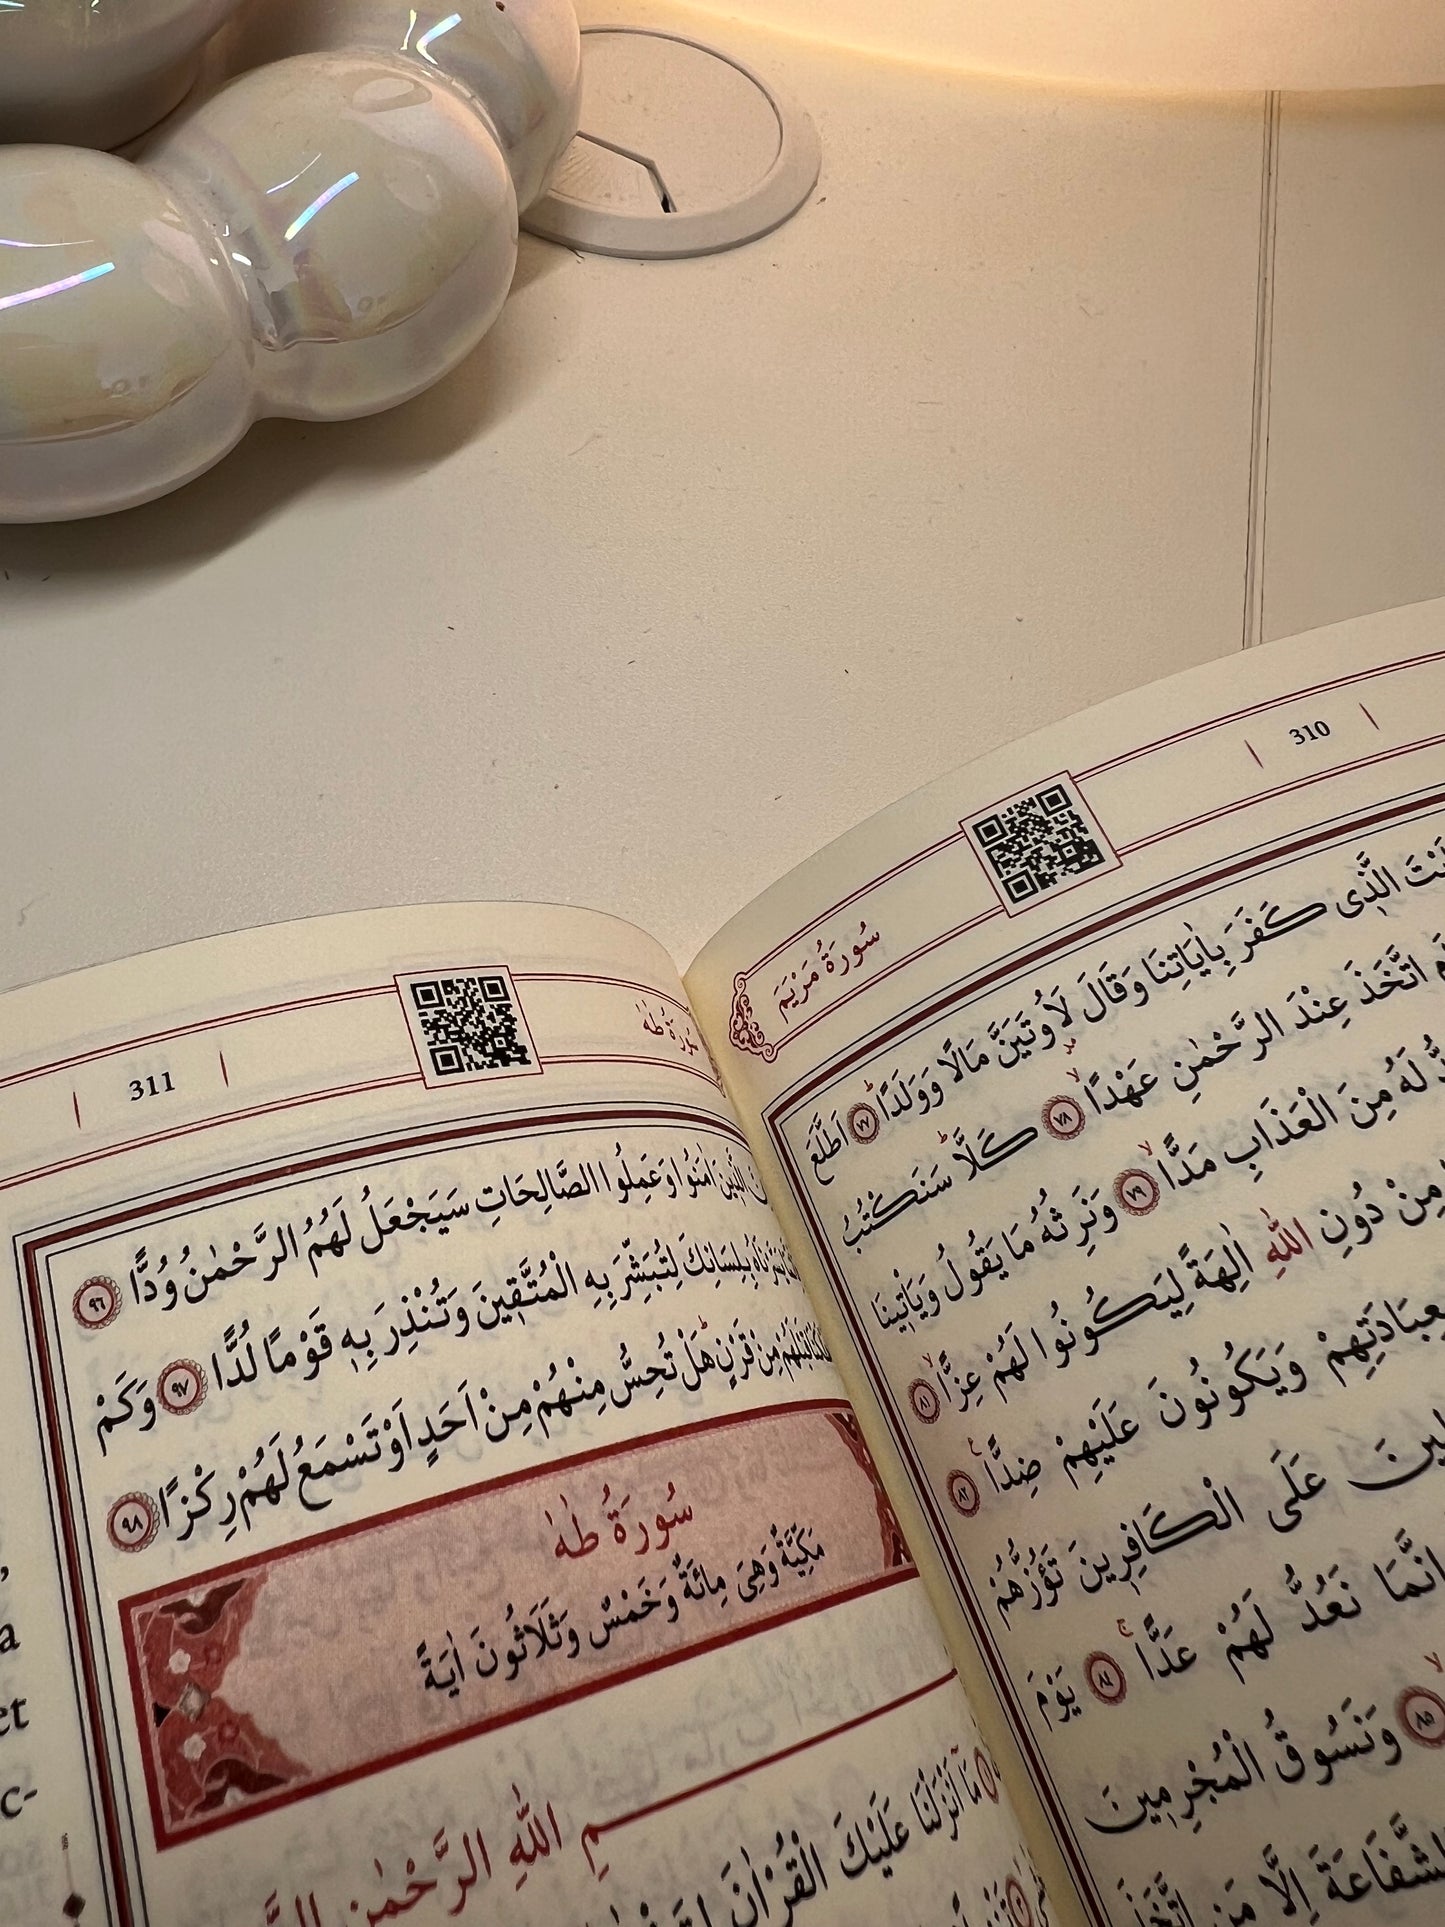 310
سُورَةُ مَرْيَمَ
الَّذٖى كَفَرَ بِاٰيَاتِنَا وَقَالَ لَاُوتَيَنَّ مَالًا وَوَلَدًاؕ ﴿٧٧﴾ اَطَّلَعَ
اتَّخَذَ عِنْدَ الرَّحْمٰنِ عَهْدًاۙ ﴿٧٨﴾ كَلَّاؕ سَنَكْتُبُ
لَهُ مِنَ الْعَذَابِ مَدًّاۙ ﴿٧٩﴾ وَنَرِثُهُ مَا يَقُولُ وَيَاْتٖينَا
مِنْ دُونِ اللّٰهِ اٰلِهَةً لِيَكُونُوا لَهُمْ عِزًّاۙ ﴿٨١﴾
بِعِبَادَتِهِمْ وَيَكُونُونَ عَلَيْهِمْ ضِدًّاࣖ ﴿٨٢﴾
عَلَى الْكَافِرٖينَ تَؤُزُّهُمْ
اِنَّمَا نَعُدُّ لَهُمْ عَدًّاۚ ﴿٨٤﴾ يَوْمَ
﴿٨٥﴾ وَنَسُوقُ الْمُجْرِمٖينَ
الشَّفَاعَةَ اِلَّا مَنِ اتَّخَذَ
سُورَةُ طٰهٰ
311
الَّذٖينَ اٰمَنُوا وَعَمِلُوا الصَّالِحَاتِ سَيَجْعَلُ لَهُمُ الرَّحْمٰنُ وُدًّا ﴿٩٦﴾
بِلِسَانِكَ لِتُبَشِّرَ بِهِ الْمُتَّقٖينَ وَتُنْذِرَ بِهٖ قَوْمًا لُدًّا ﴿٩٧﴾ وَكَمْ
مِنْ قَرْنٍؕ هَلْ تُحِسُّ مِنْهُمْ مِنْ اَحَدٍ اَوْ تَسْمَعُ لَهُمْ رِكْزًا ﴿٩٨﴾
سُورَةُ طٰهٰ
مَكِّيَّةٌ وَهِىَ مِائَةٌ وَخَمْسٌ وَثَلَاثُونَ اٰيَةً
اللّٰهِ الرَّحْمٰنِ
مَٓا اَنْزَلْنَا عَلَيْكَ الْقُرْاٰنَ
a
et
c-